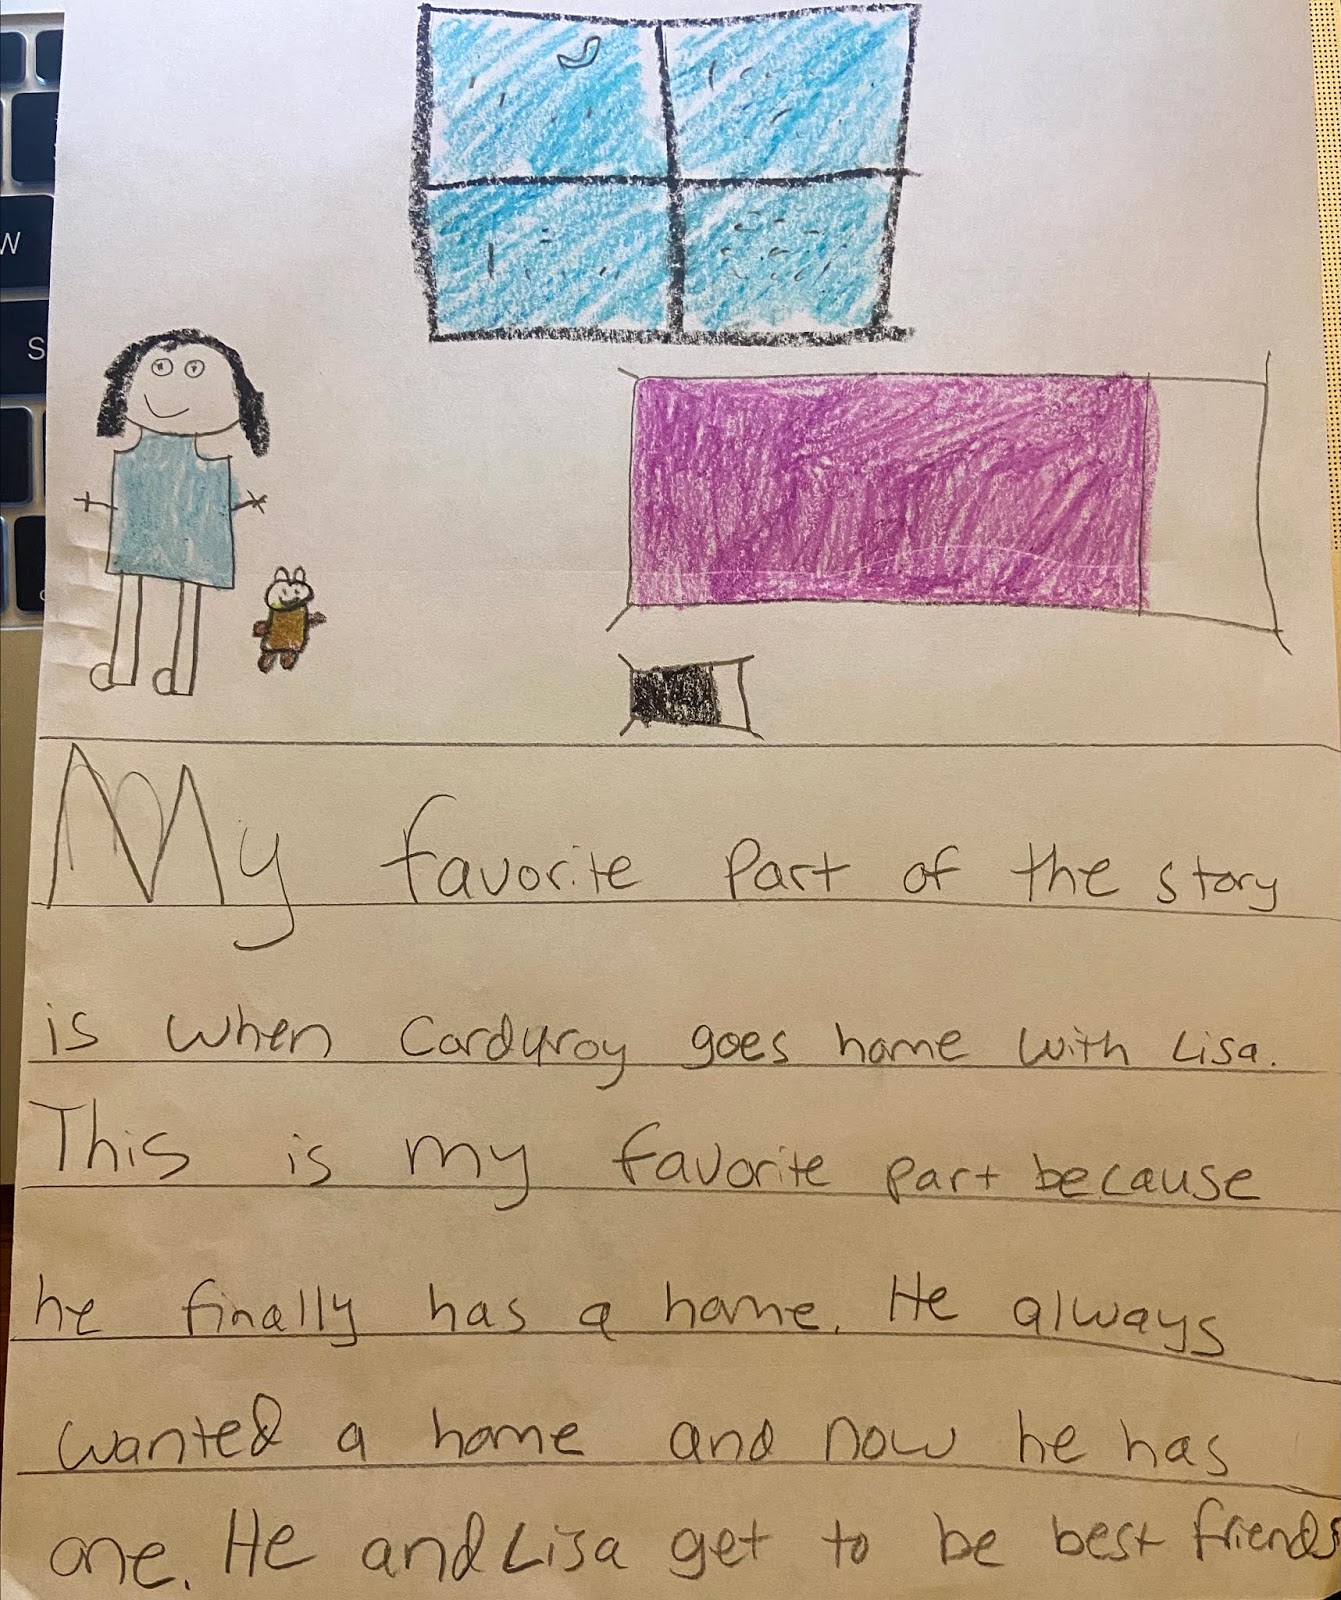 W
S
My favorite part of the story
is when Corduroy goes home with Lisa.
This is my favorite part because
he finally has a home. He always
wanted a home and now he has
one. He and Lisa get to be best friends